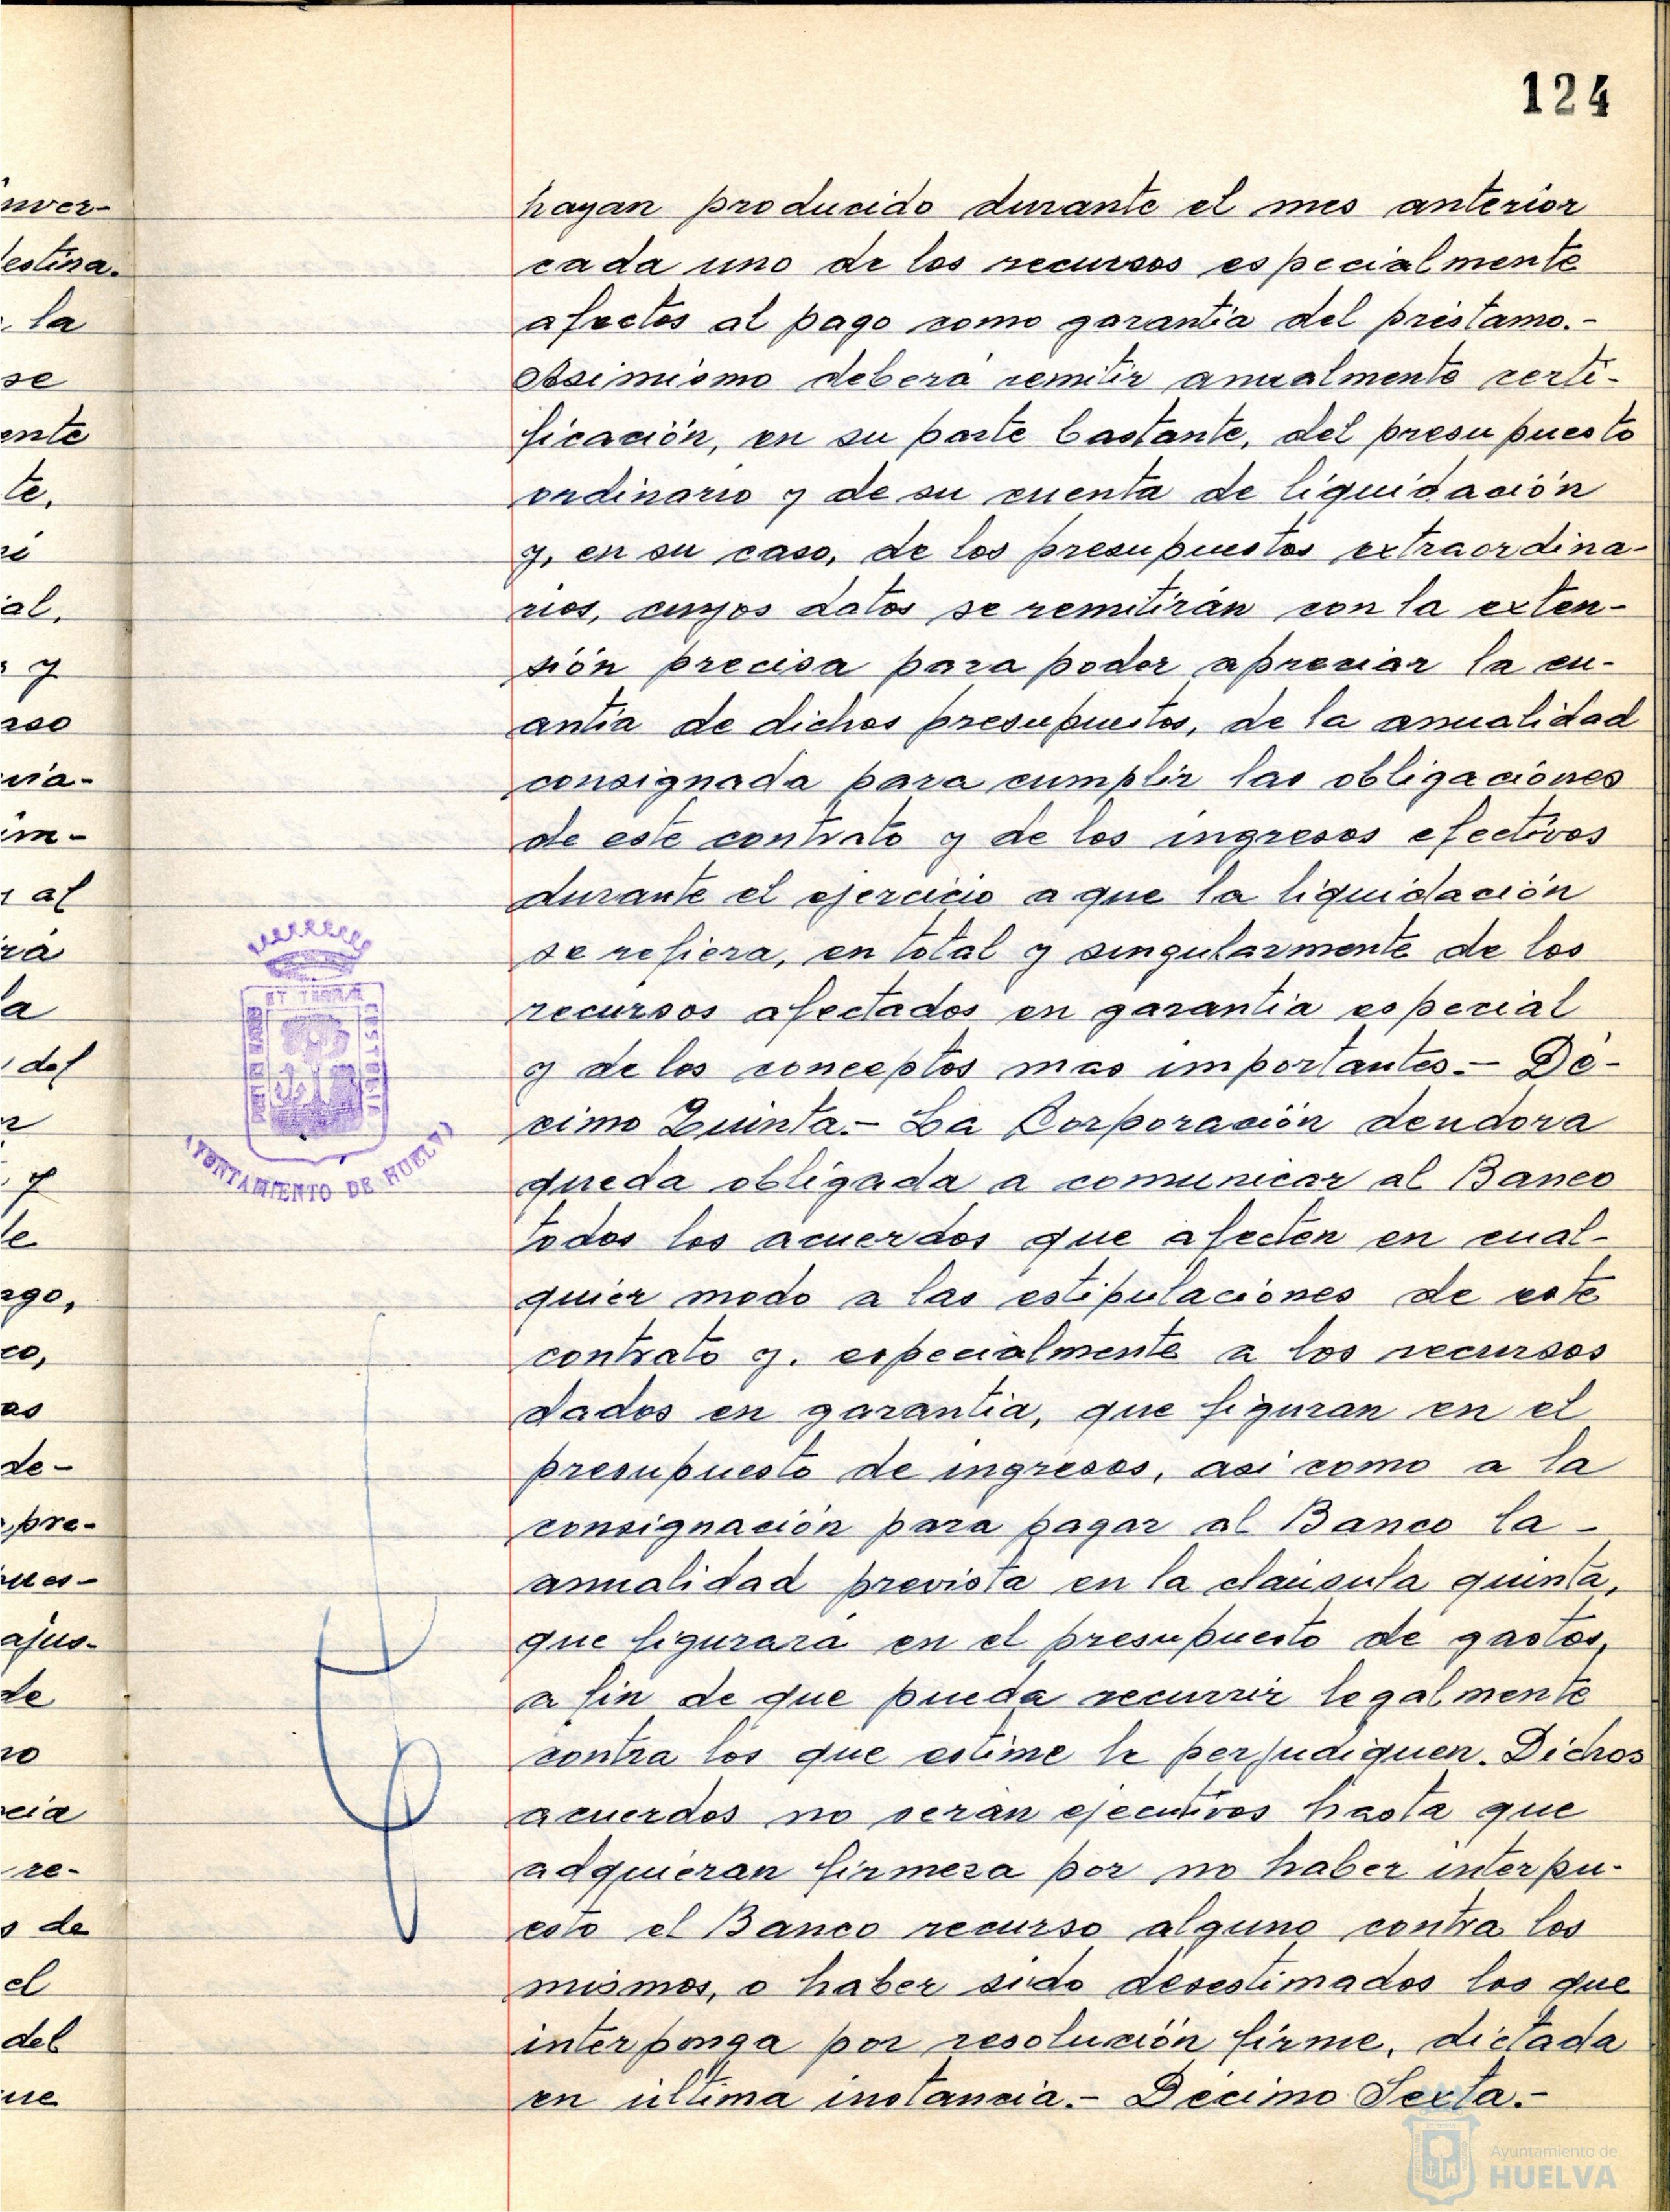 124
hayan producido durante el mes anterior
cada uno de los recursos especialmente
afectos al pago como garantía del préstamo.-
Asimismo deberá remitir anualmente certi-
ficación, en su parte bastante, del presupuesto
ordinario y de su cuenta de liquidación
y, en su caso, de los presupuestos extraordina-
rios, cuyos datos se remitirán con la exten-
sión precisa para poder apreciar la cu-
antía de dichos presupuestos, de la anualidad
consignada para cumplir las obligaciones
de este contrato y de los ingresos efectivos
durante el ejercicio a que la liquidación
se refiera, en total y singularmente de los
recursos afectados en garantía especial
y de los conceptos mas importantes.- Dé-
cimo Quinta.- La Corporación deudora
queda obligada a comunicar al Banco
todos los acuerdos que afecten en cual-
quier modo a las estipulaciones de este
contrato y. especialmente a los recursos
dados en garantía, que figuran en el
presupuesto de ingresos, asi como a la
consignación para pagar al Banco la -
anualidad prevista en la cláusula quinta,
que figurará en el presupuesto de gastos,
a fin de que pueda recurrir legalmente
contra los que estime le perjudiquen. Dichos
acuerdos no serán ejecutivos hasta que
adquieran firmeza por no haber interpu-
esto el Banco recurso alguno contra los
mismos, o haber sido desestimados los que
interponga por resolución firme, dictada
en última instancia.- Décimo Sexta.-
inver-
destina.
la
se
ente
te.
ni
al.
y
rso
cia-
im-
al
rá
la
del
y
le
ago,
co,
as
de-
pre-
pues-
ajus-
de
no
cia
re-
s de
el
del
que
AYUNTAMIENTO DE HUELVA
Ayuntamiento de
HUELVA